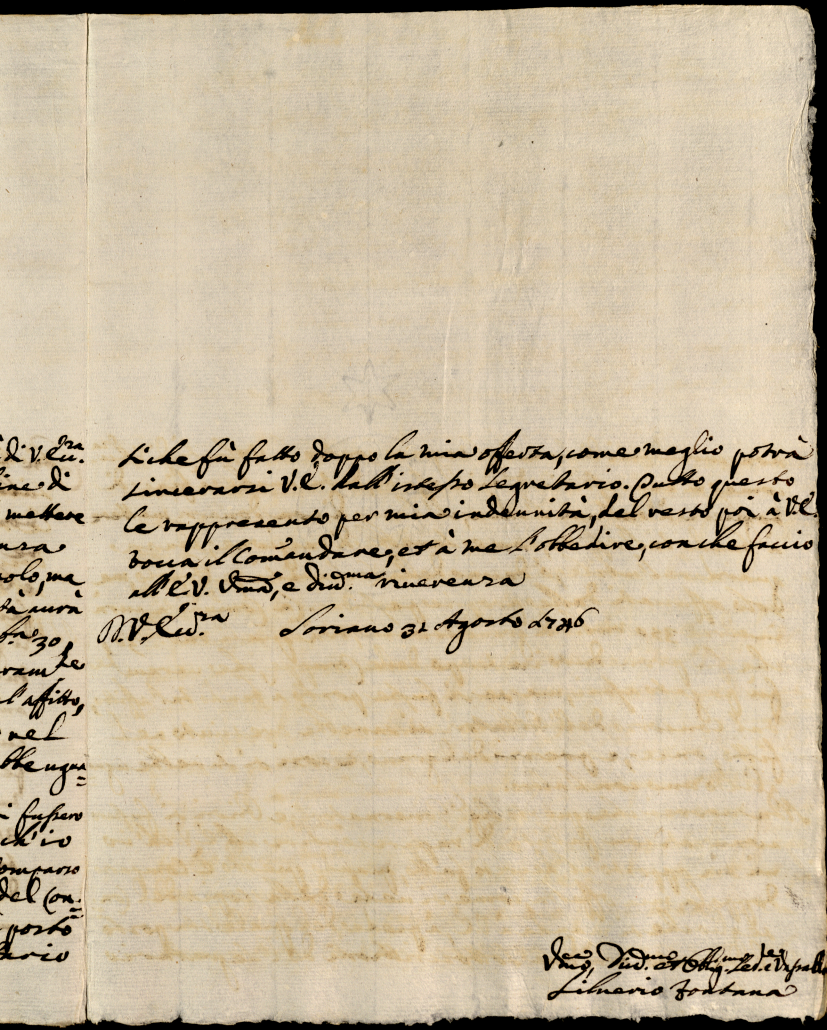 di V. Ecc.za
fine di
mettere
nza
olo, me
tà aurà
30,
ram.te
l'affitto,
nel
bbe ugua=
i fussero
ch'io
comparso
del Con=
posto
tario
siche fù fatto doppo la mia offerta, come meglio potrà
sincerarsi V.E. dall'istesso Segretario. Tutto questo
le rappresento per mia indennità, del resto poi à V.E.
tocca il Comandare, et à me l'obbedire, con che faccio
all'E.V. Um̃a, e Div.ma riverenza
D. V. Ecc.za Soriano 31 Agosto 1746
Um̃o, Div.mo et Obblig.mo Ser.e e Vassallo
Silverio Fontana